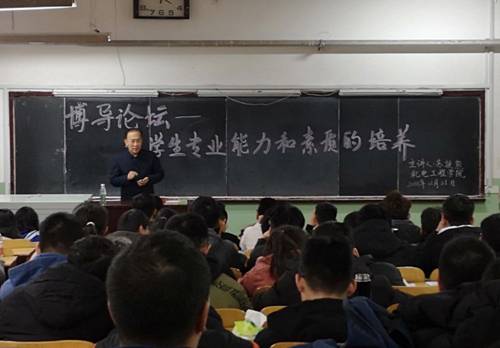 博导论坛—
学生专业能力和素质的培养
主讲人:
机电工程学院
8 7 6 5 4